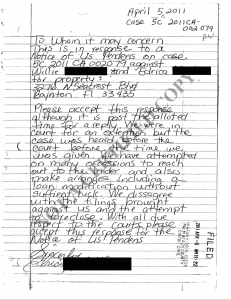 April 5, 2011
Case 5C 2011CA-
002079
To Whom it may concern
This is in response to a
Notice of Lis Pendens on case
5C 2011 CA 002079 against
Willie and Edrica
for property:
3270 N Seacrest Blvd
Boynton Fl 33435
Please accept this response
although it is past the alloted
time for a reply. We were in
court for an extention but the
case was heard before the
court before the time we
was given. We have attempted
on many occassions to reach
out to the lender and also
make arrangements including a
loan modification without
sufficient luck. We dissagree
with the filings brought
against us and the attempt
to foreclose. With all due
respect to the courts, please
accept this response for the
Notice of Lis Pendens
Sincerely
FILED